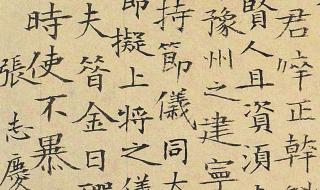 君倅正幹
賢人且資須
豫州之建寧
持節儀同大
擬上將之儀
夫金日磾
時使不暴
張志慶